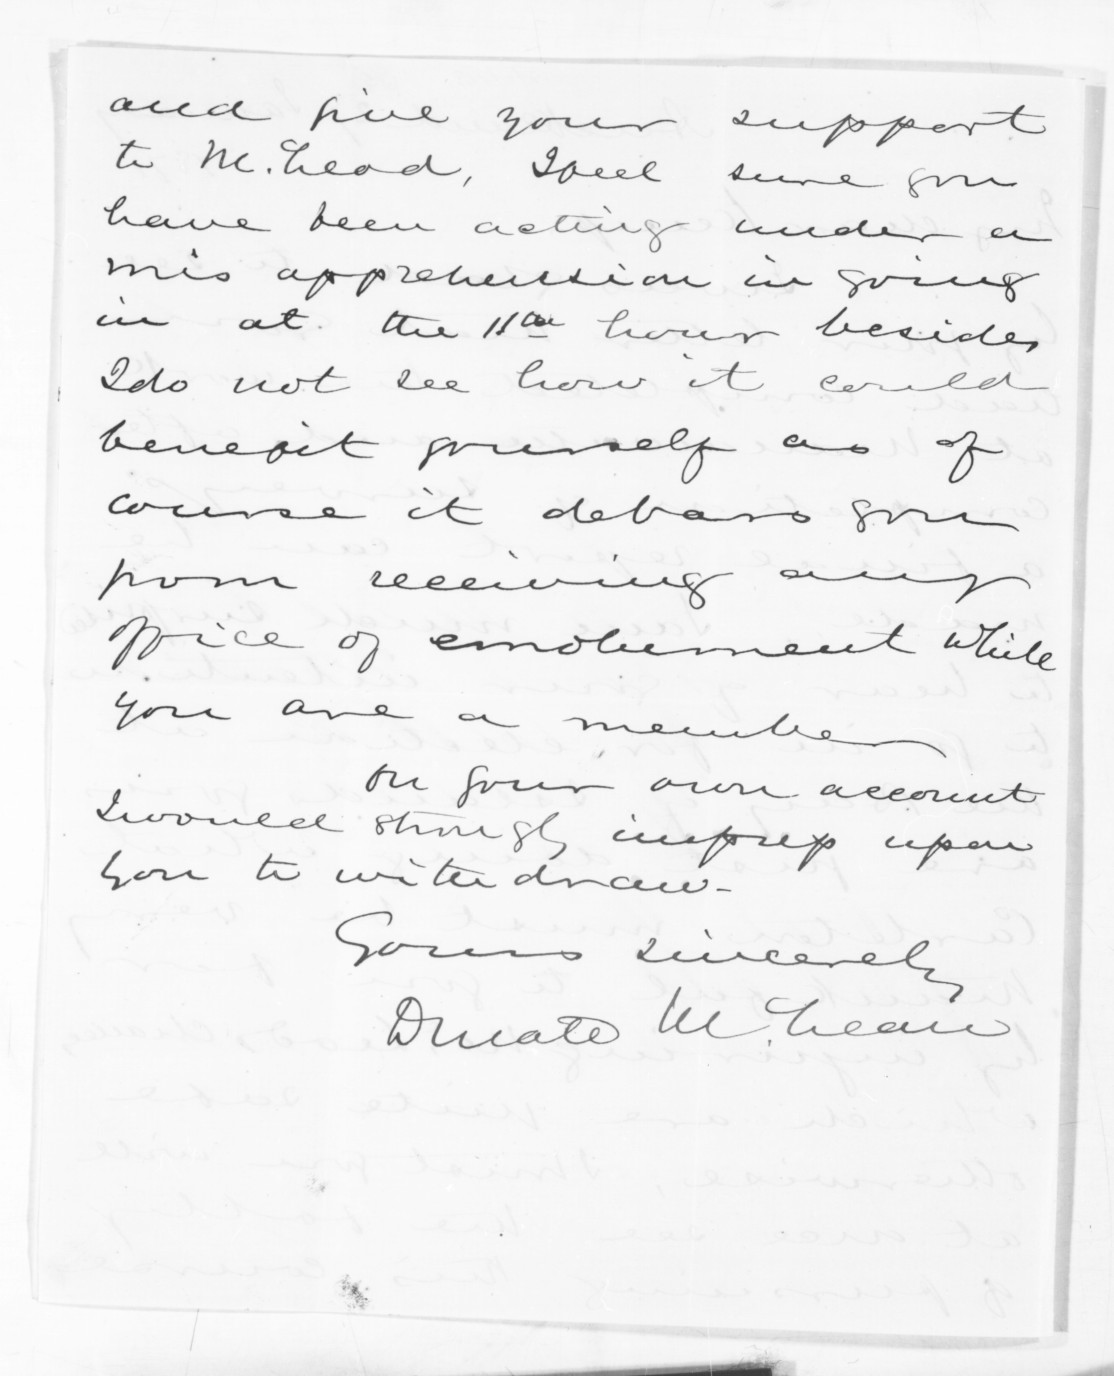 and give your support
to McLeod, I feel sure you
have been acting under a
mis apprehension in going
in at the 11th hour besides
I do not see how it could
benefit yourself as of
course it debars you
from receiving any
office of emolument while
you are a member
On your own account
I would strongly impress upon
you to withdraw -
Yours sincerely
McLean